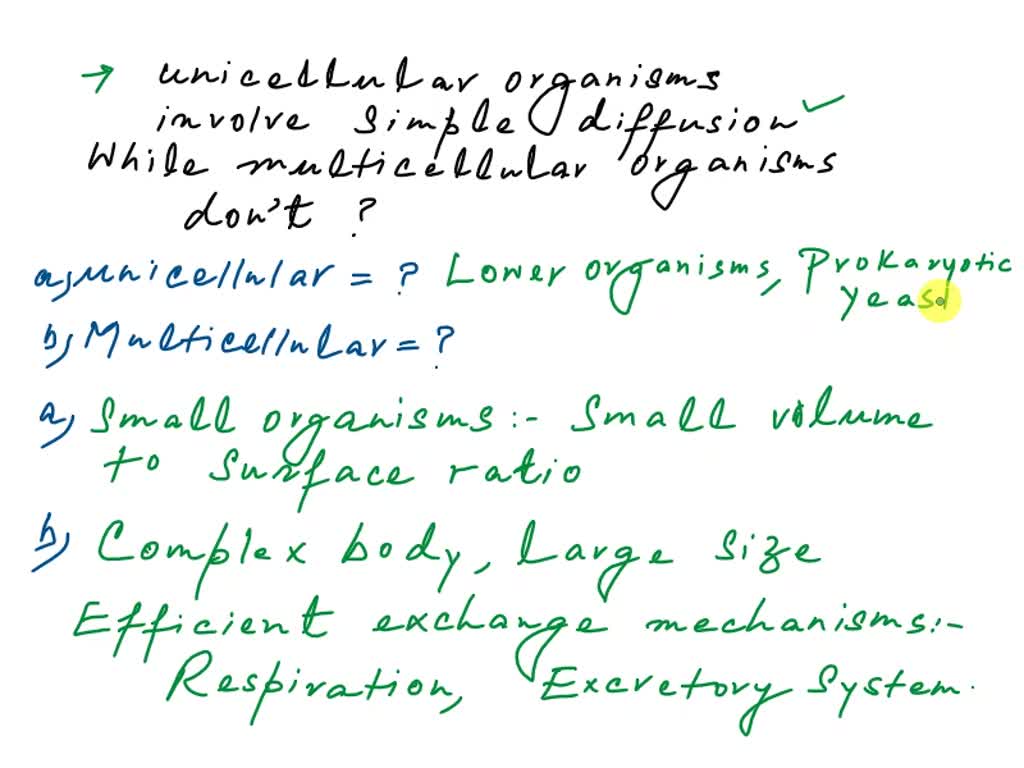 → unicellular organisms
involve simple diffusion ✓
While multicellular organisms
don't ?
a, unicellular = ? Lower organisms, Prokaryotic
yeas
b, Multicellular = ?
a, Small organisms:- Small volume
to surface ratio
b, Complex body, Large size
Efficient exchange mechanisms:-
Respiration, Excretory System.